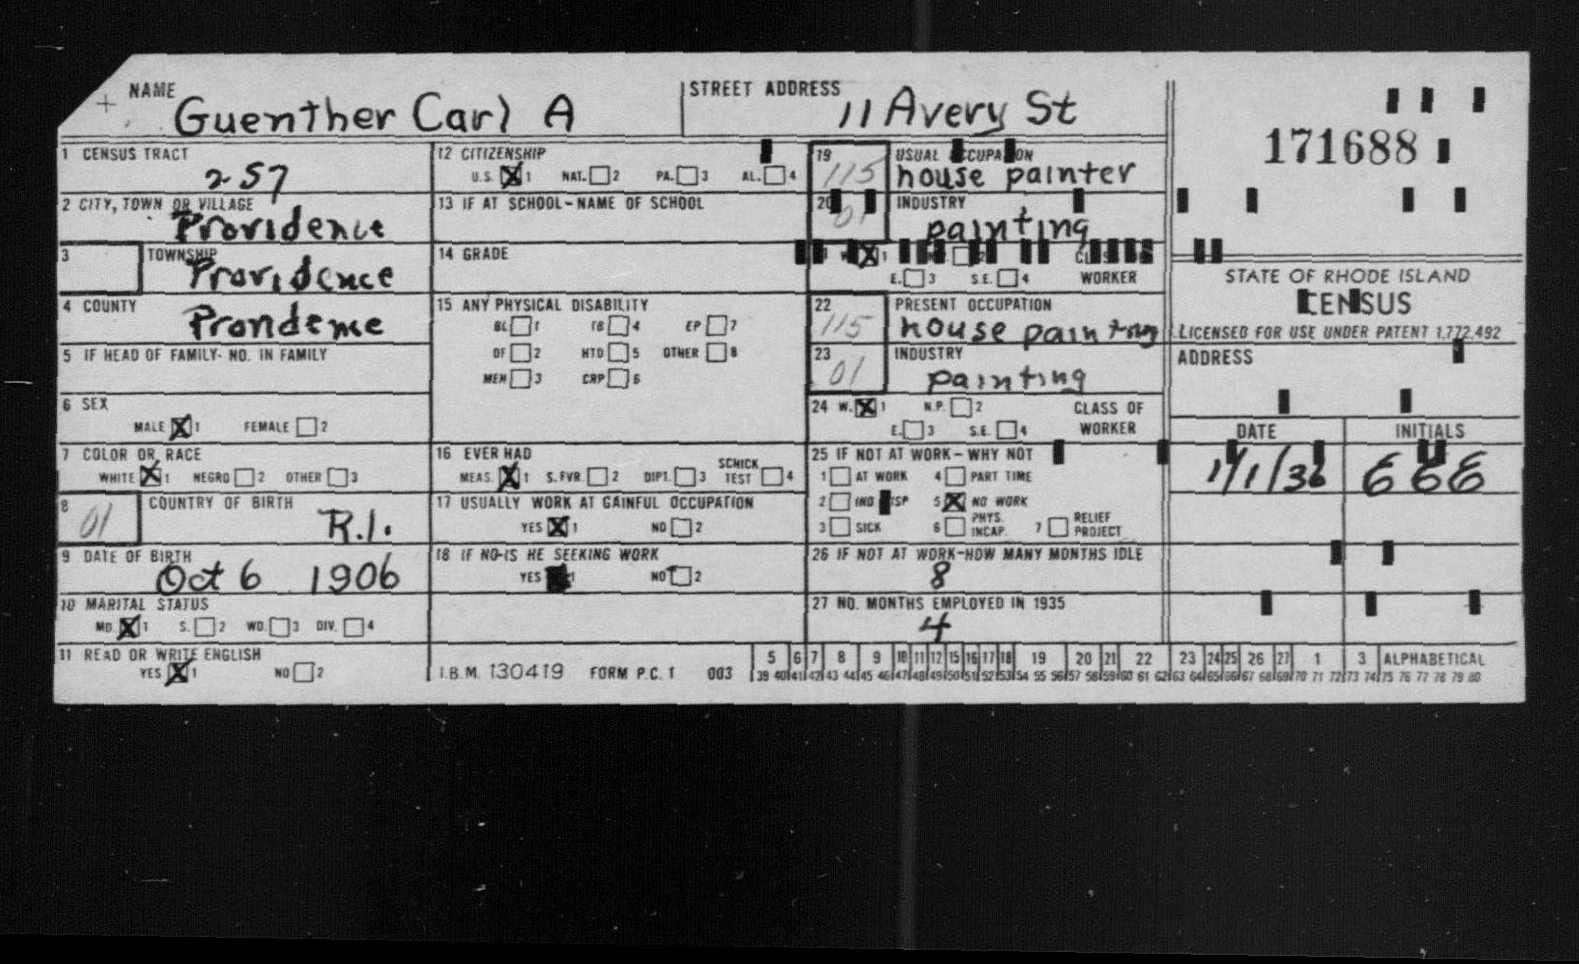 NAME Guenther Carl A STREET ADDRESS 11 Avery St
171688
1 CENSUS TRACT 257
2 CITY, TOWN OR VILLAGE Providence
3 TOWNSHIP Providence
4 COUNTY Providence
5 IF HEAD OF FAMILY- NO. IN FAMILY
6 SEX
MALE X 1 FEMALE 2
7 COLOR OR RACE
WHITE X 1 NEGRO 2 OTHER 3
8 01 COUNTRY OF BIRTH R.I.
9 DATE OF BIRTH
Oct 6 1906
10 MARITAL STATUS
MD. X 1 S. 2 WD. 3 DIV. 4
11 READ OR WRITE ENGLISH
YES X 1 NO 2
12 CITIZENSHIP
U.S. X 1 NAT. 2 PA. 3 AL. 4
13 IF AT SCHOOL-NAME OF SCHOOL
14 GRADE
15 ANY PHYSICAL DISABILITY
BL 1 TB 4 EP 7
DF 2 HTD 5 OTHER 8
MEN 3 CRP 6
16 EVER HAD
MEAS. X 1 S.FVR. 2 DIPT. 3 SCHICK TEST 4
17 USUALLY WORK AT GAINFUL OCCUPATION
YES X 1 NO 2
18 IF NO-IS HE SEEKING WORK
YES 1 NO 2
I.B.M. 130419 FORM P.C. 1 003
19 115 USUAL OCCUPATION
house painter
20 01 INDUSTRY
painting
W. X 1
E. 3 S.E. 4 WORKER
22 115 PRESENT OCCUPATION
house painting
23 01 INDUSTRY
painting
24 W. X 1 N.P. 2 CLASS OF
E. 3 S.E. 4 WORKER
25 IF NOT AT WORK-WHY NOT
1 AT WORK 4 PART TIME
2 IND DISP 5 X NO WORK
3 SICK 6 PHYS. INCAP. 7 RELIEF PROJECT
26 IF NOT AT WORK-HOW MANY MONTHS IDLE
8
27 NO. MONTHS EMPLOYED IN 1935
4
STATE OF RHODE ISLAND
CENSUS
LICENSED FOR USE UNDER PATENT 1,772,492
ADDRESS
DATE INITIALS
1/1/36 EEE
5 6 7 8 9 10 11 12 15 16 17 18 19 20 21 22 23 24 25 26 27 1 3 ALPHABETICAL
39 40 41 42 43 44 45 46 47 48 49 50 51 52 53 54 55 56 57 58 59 60 61 62 63 64 65 66 67 68 69 70 71 72 73 74 75 76 77 78 79 80